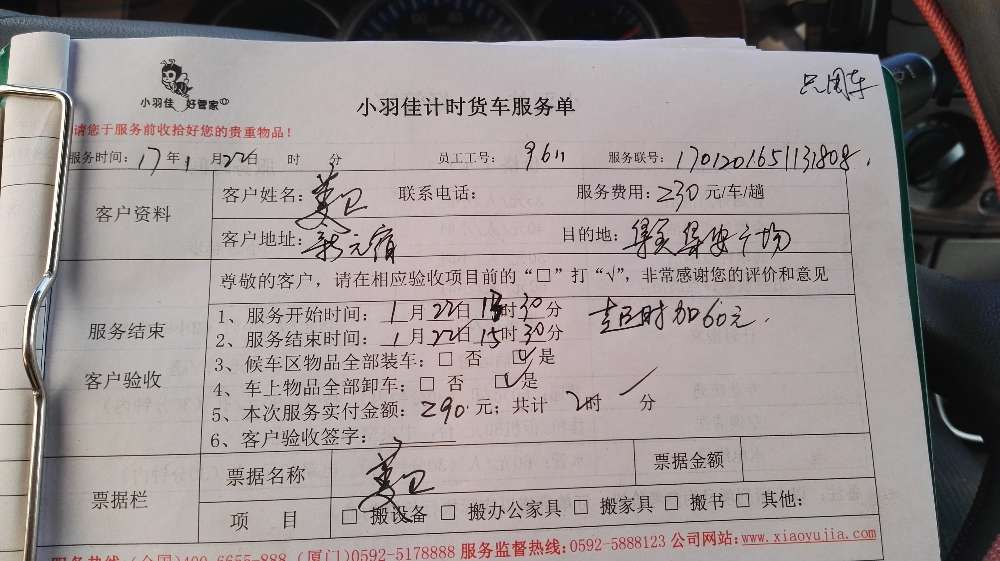 只用车
小羽佳 好管家
小羽佳计时货车服务单
请您于服务前收拾好您的贵重物品！
服务时间：17年1月22日 时 分 员工工号：9611 服务联号：1701201651131808.
客户资料
客户姓名：姜卫 联系电话： 服务费用：230元/车/趟
客户地址： 目的地：
尊敬的客户，请在相应验收项目前的“□”打“√”，非常感谢您的评价和意见
服务结束
客户验收
1、服务开始时间：1月22日13时30分
2、服务结束时间：1月22日15时30分
超时加60元.
3、候车区物品全部装车：□ 否 ☑是
4、车上物品全部卸车：□ 否 ☑是
5、本次服务实付金额：290元；共计 2时 / 分
6、客户验收签字：姜卫
票据栏
票据名称 票据金额
项 目 □ 搬设备 □ 搬办公家具 □ 搬家具 □ 搬书 □ 其他:
服务热线:(全国)400-6655-888 (厦门)0592-5178888 服务监督热线:0592-5888123 公司网站:www.xiaoyujia.com